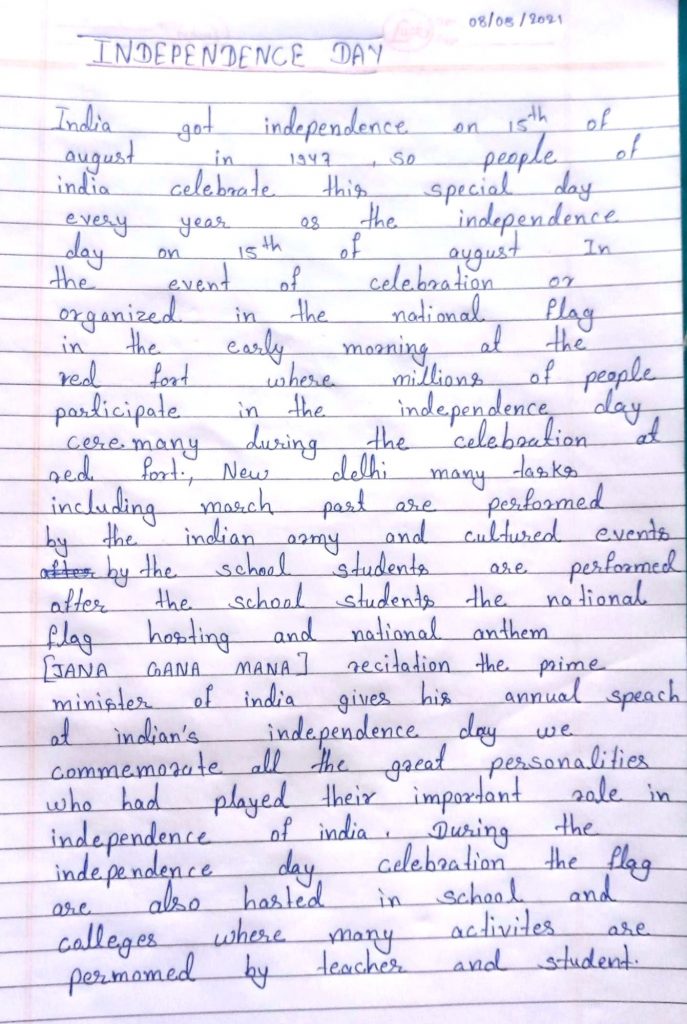 08/08/2021
INDEPENDENCE DAY
India got independence on 15th of
august in 1947, so people of
india celebrate this special day
every year as the independence
day on 15th of august In
the event of celebration or
organized in the national flag
in the early morning at the
red fort where millions of people
participate in the independence day
ceremany during the celebration at
red fort., New delhi many tasks
including march past are performed
by the indian army and cultured events
after by the school students are performed
after the school students the national
flag hosting and national anthem
[JANA GANA MANA] recitation the prime
minister of india gives his annual speach
at indian's independence day we
commemorate all the great personalities
who had played their important role in
independence of india. During the
independence day celebration the flag
are also hosted in school and
colleges where many activites are
permomed by teacher and student.